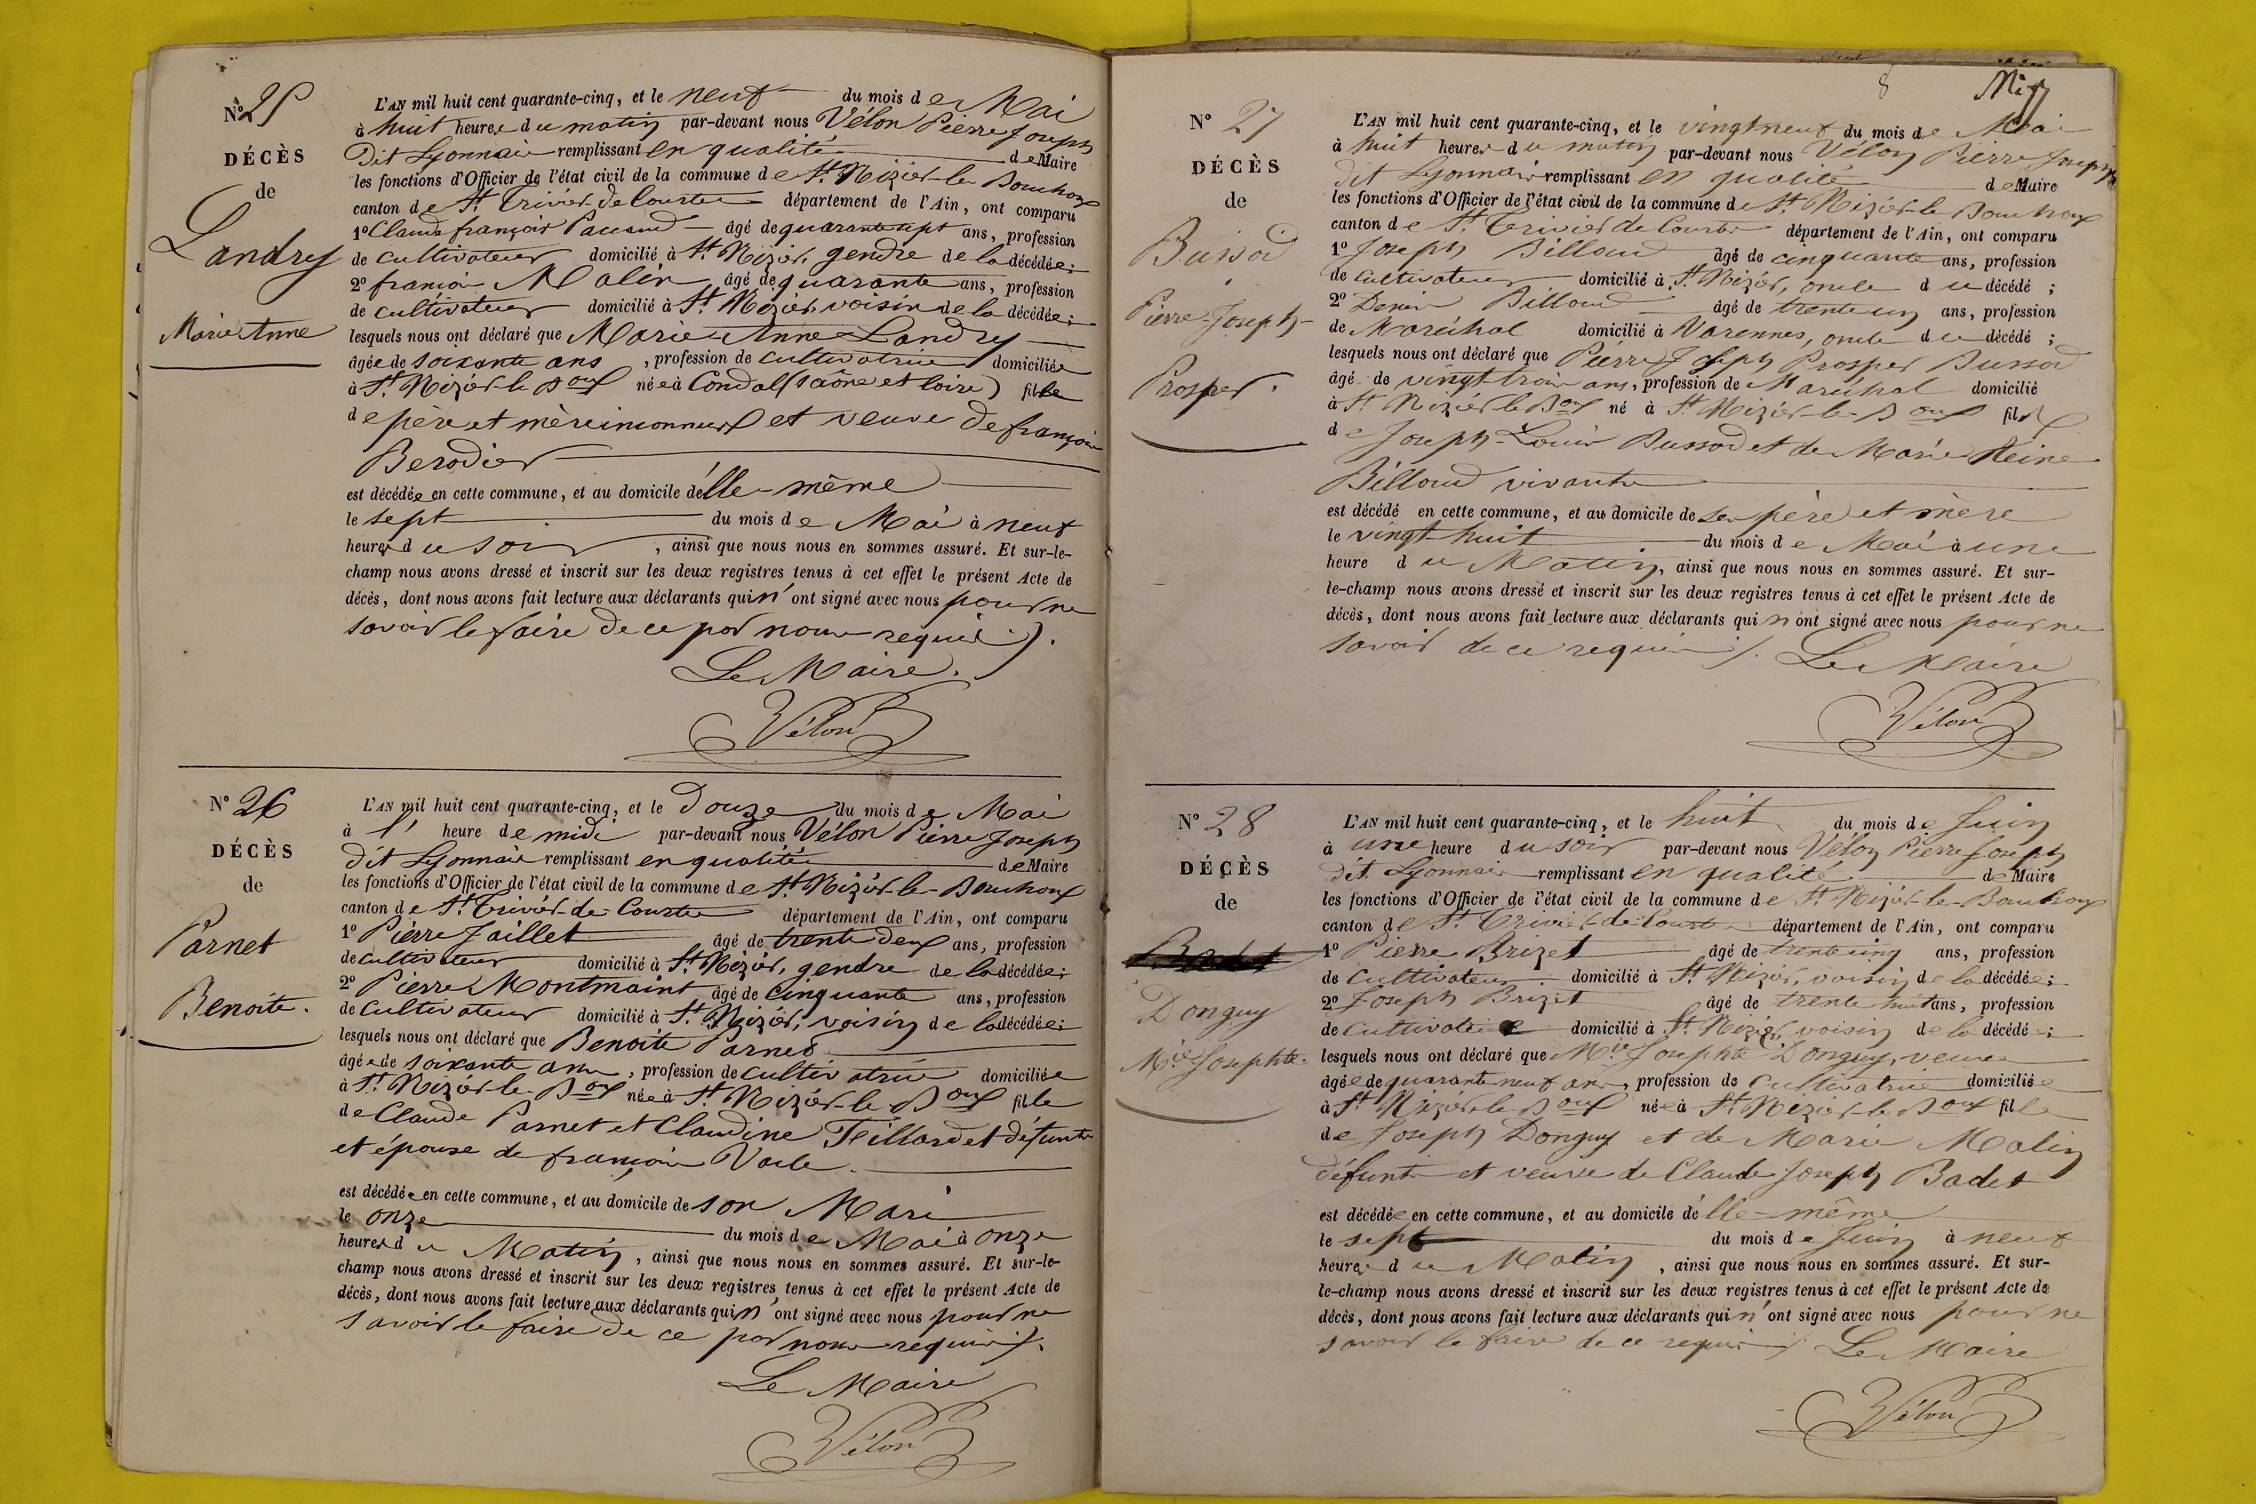 N° 25
DÉCÈS
de
Landry
Marie Anne
L'AN mil huit cent quarante-cinq, et le neuf du mois de Mai
à huit heures du matin par-devant nous Vélon Pierre Joseph
dit Lyonnais remplissant en qualité de Maire
les fonctions d'Officier de l'état civil de la commune de St. Nizier-le-Bouchoux
canton de St. Trivier de Courtes département de l'Ain, ont comparu
1° Claude françois Pacaud âgé de quarante sept ans, profession
de cultivateur domicilié à St. Nizier, gendre de la décédée;
2° françois Malin âgé de quarante ans, profession
de cultivateur domicilié à St. Nizier, voisin de la décédée;
lesquels nous ont déclaré que Marie Anne Landry
âgée de soixante ans, profession de cultivatrice domiciliée
à St. Nizier-le-Boux née à Condal (saône et loire) fille
de père et mère inconnus et veuve de françois
Berodier
est décédée en cette commune, et au domicile d'elle-même
le sept du mois de Mai à neuf
heures du soir, ainsi que nous nous en sommes assuré. Et sur-le-
champ nous avons dressé et inscrit sur les deux registres tenus à cet effet le présent Acte de
décès, dont nous avons fait lecture aux déclarants qui n'ont signé avec nous pour ne
savoir le faire de ce par nous requis.
Le Maire.
Vélon
N° 26
DÉCÈS
de
Parnet
Benoite.
L'AN mil huit cent quarante-cinq, et le douze du mois de Mai
à 1 heure de midi par-devant nous Vélon Pierre Joseph
dit Lyonnais remplissant en qualité de Maire
les fonctions d'Officier de l'état civil de la commune de St. Nizier-le-Bouchoux
canton de St. Trivier-de-Courtes département de l'Ain, ont comparu
1° Pierre Jaillet âgé de trente deux ans, profession
de cultivateur domicilié à St. Nizier, gendre de la décédée;
2° Pierre Montmaint âgé de cinquante ans, profession
de cultivateur domicilié à St. Nizier, voisin de la décédée;
lesquels nous ont déclaré que Benoite Parnet
âgée de soixante ans, profession de cultivatrice domiciliée
à St. Nizier-le-Boux née à St. Nizier-le-Boux fille
de Claude Parnet et Claudine Teillard et défunts
et épouse de françois
est décédée en cette commune, et au domicile de son Mari
le onze du mois de Mai à onze
heures du Matin, ainsi que nous nous en sommes assuré. Et sur-le-
champ nous avons dressé et inscrit sur les deux registres tenus à cet effet le présent Acte de
décès, dont nous avons fait lecture aux déclarants qui n'ont signé avec nous pour ne
savoir le faire de ce par nous requis.
Le Maire
Vélon
8
N° 27
DÉCÈS
de
Bussod
Pierre-Joseph-
Prosper.
L'AN mil huit cent quarante-cinq, et le vingt neuf du mois de Mai
à huit heures du matin par-devant nous Vélon Pierre Joseph
dit Lyonnais remplissant en qualité de Maire
les fonctions d'Officier de l'état civil de la commune de St. Nizier-le-Bouchoux
canton de St. Trivier de Courtes département de l'Ain, ont comparu
1° Joseph Billoud âgé de cinquante ans, profession
de cultivateur domicilié à St. Nizier, oncle du décédé;
2° Denis Billoud âgé de trente un ans, profession
de Maréchal domicilié à Varennes, oncle du décédé;
lesquels nous ont déclaré que Pierre Joseph Prosper Bussod
âgé de vingt trois ans, profession de Maréchal domicilié
à St. Nizier le Boux né à St. Nizier-le-Boux fils
de Joseph-Louis Bussod et de Marie Reine
Billoud vivants
est décédé en cette commune, et au domicile de ses père et mère
le vingt-huit du mois de Mai à une
heure du Matin, ainsi que nous nous en sommes assuré. Et sur-
le-champ nous avons dressé et inscrit sur les deux registres tenus à cet effet le présent Acte de
décès, dont nous avons fait lecture aux déclarants qui n'ont signé avec nous pour ne
savoir de ce requis. Le Maire
Vélon
N° 28
DÉCÈS
de
Donguy
Mie. Josephte.
L'AN mil huit cent quarante-cinq, et le huit du mois de Juin
à une heure du soir par-devant nous Vélon Pierre Joseph
dit Lyonnais remplissant en qualité de Maire
les fonctions d'Officier de l'état civil de la commune de St. Nizier-le-Bouchoux
canton de St. Trivier-de-Courtes département de l'Ain, ont comparu
1° Pierre Brizet âgé de trente cinq ans, profession
de cultivateur domicilié à St. Nizier, voisin de la décédée;
2° Joseph Brizet âgé de trente huit ans, profession
de cultivateur domicilié à St. Nizier, voisin de la décédée;
lesquels nous ont déclaré que Mie. Josephte Donguy, veuve
âgée de quarante neuf ans, profession de cultivatrice domiciliée
à St. Nizier-le-Boux née à St. Nizier-le-Boux fille
de Joseph Donguy et de Marie Malin
défunts et veuve de Claude Joseph Badet
est décédée en cette commune, et au domicile d'elle-même
le sept du mois de Juin à neuf
heures du Matin, ainsi que nous nous en sommes assuré. Et sur-
le-champ nous avons dressé et inscrit sur les deux registres tenus à cet effet le présent Acte de
décès, dont nous avons fait lecture aux déclarants qui n'ont signé avec nous pour ne
savoir le faire de ce requis. Le Maire
Vélon